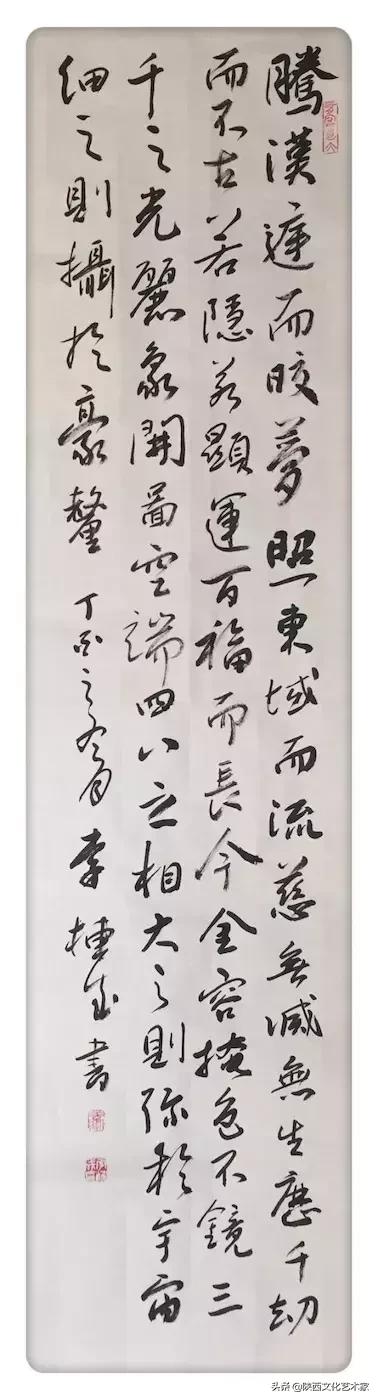 騰漢庭而晈夢照東域而流慈無滅無生歷千劫
而不古若隱若顯運百福而長今全容掩色不鏡三
千之光麗象開啚空端四八之相大之則弥於宇宙
細之則攝於豪釐 丁酉之冬月 李 書
头条@陕西文化艺术家